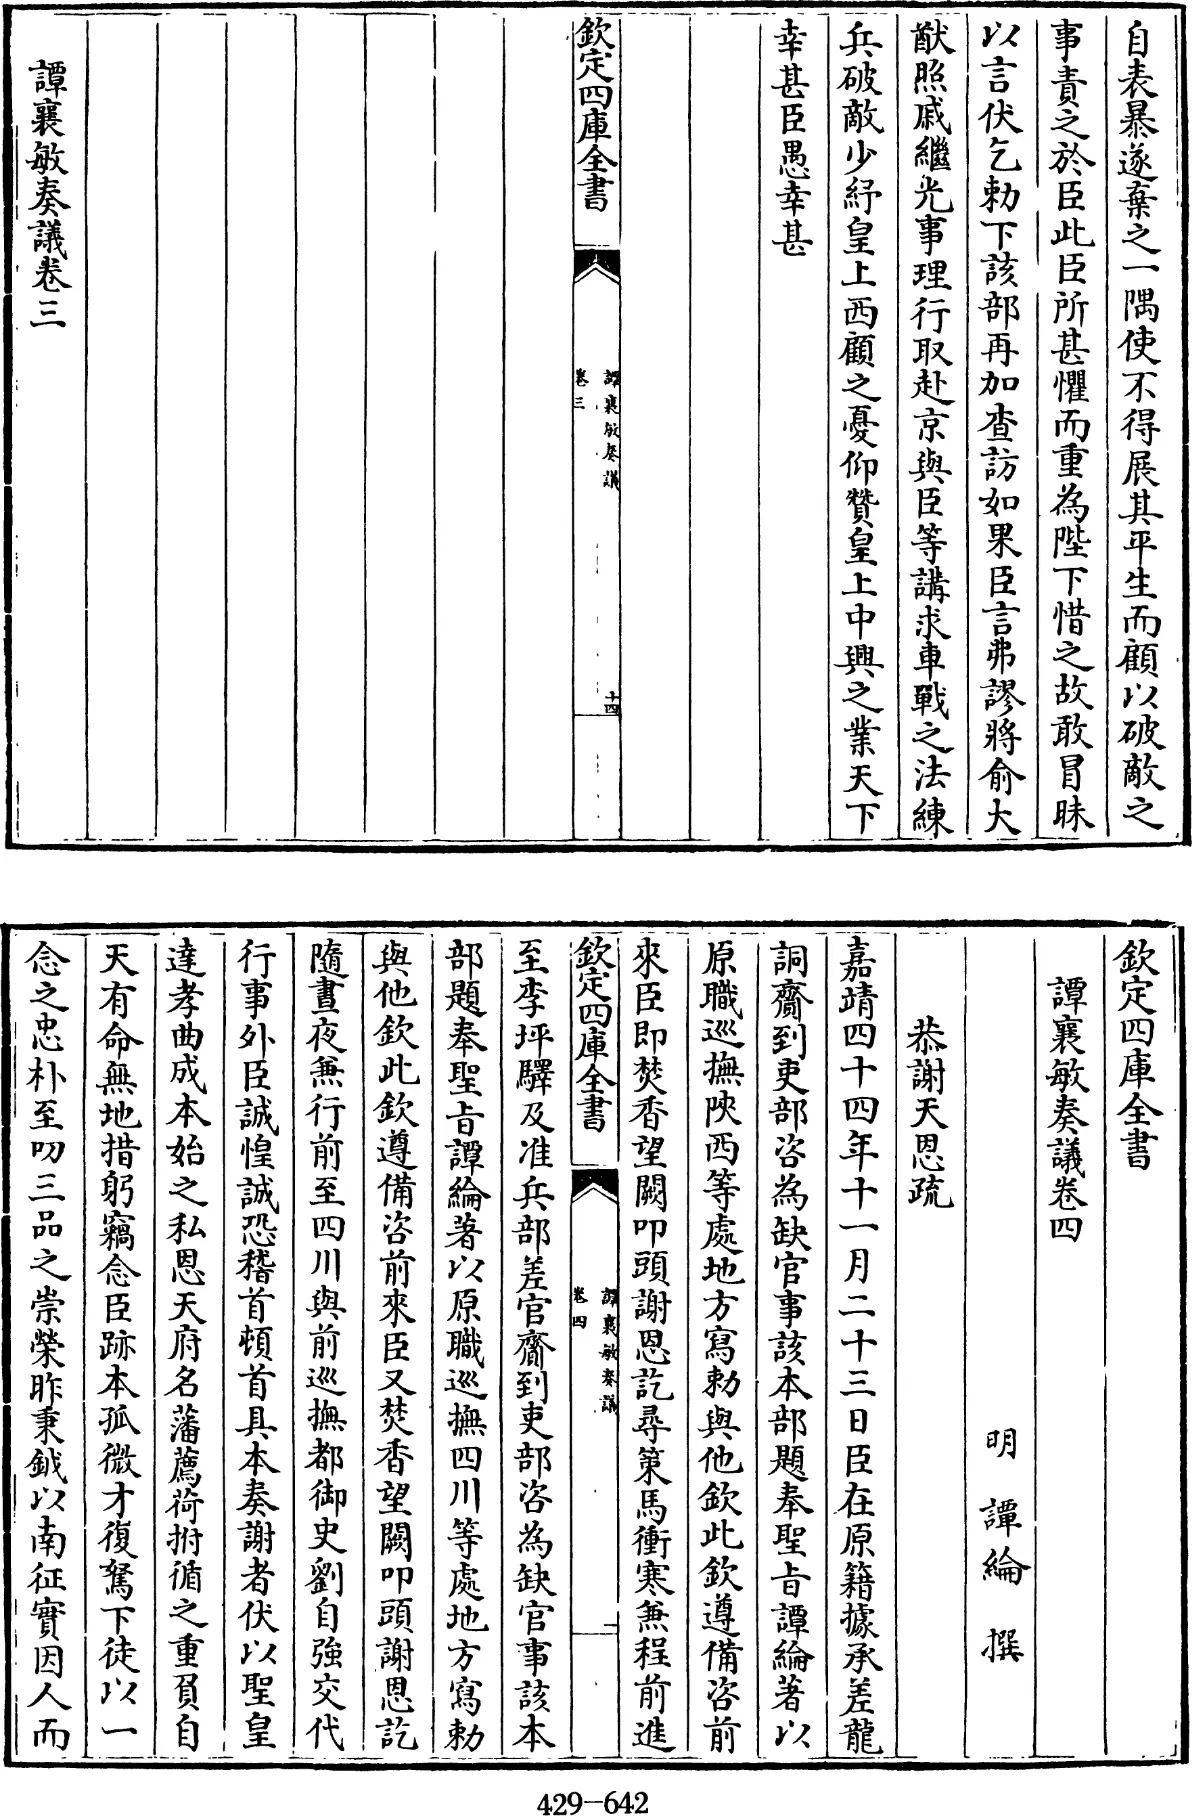 自表暴遂棄之一隅使不得展其平生而顧以破敵之
事責之於臣此臣所甚懼而重為陛下惜之故敢冒昧
以言伏乞勅下該部再加查訪如果臣言弗謬將俞大
猷照戚繼光事理行取赴京與臣等講求車戰之法練
兵破敵少紓皇上西顧之憂仰贊皇上中興之業天下
幸甚臣愚幸甚
欽定四庫全書
譚襄敏奏議
卷三
十四
譚襄敏奏議卷三
欽定四庫全書
譚襄敏奏議卷四
明 譚綸 撰
恭謝天恩疏
嘉靖四十四年十一月二十三日臣在原籍據承差龍
詞齎到吏部咨為缺官事該本部題奉聖旨譚綸著以
原職巡撫陝西等處地方寫勅與他欽此欽遵備咨前
來臣即焚香望闕叩頭謝恩訖尋策馬衝寒兼程前進
欽定四庫全書
譚襄敏奏議
卷四
一
至李坪驛及准兵部差官齎到吏部咨為缺官事該本
部題奉聖旨譚綸著以原職巡撫四川等處地方寫勅
與他欽此欽遵備咨前來臣又焚香望闕叩頭謝恩訖
隨晝夜兼行前至四川與前巡撫都御史劉自強交代
行事外臣誠惶誠恐稽首頓首具本奏謝者伏以聖皇
達孝曲成本始之私恩天府名藩薦荷拊循之重負自
天有命無地措躬竊念臣跡本孤微才復駑下徒以一
念之忠朴至叨三品之崇榮昨秉鉞以南征實因人而
429-642